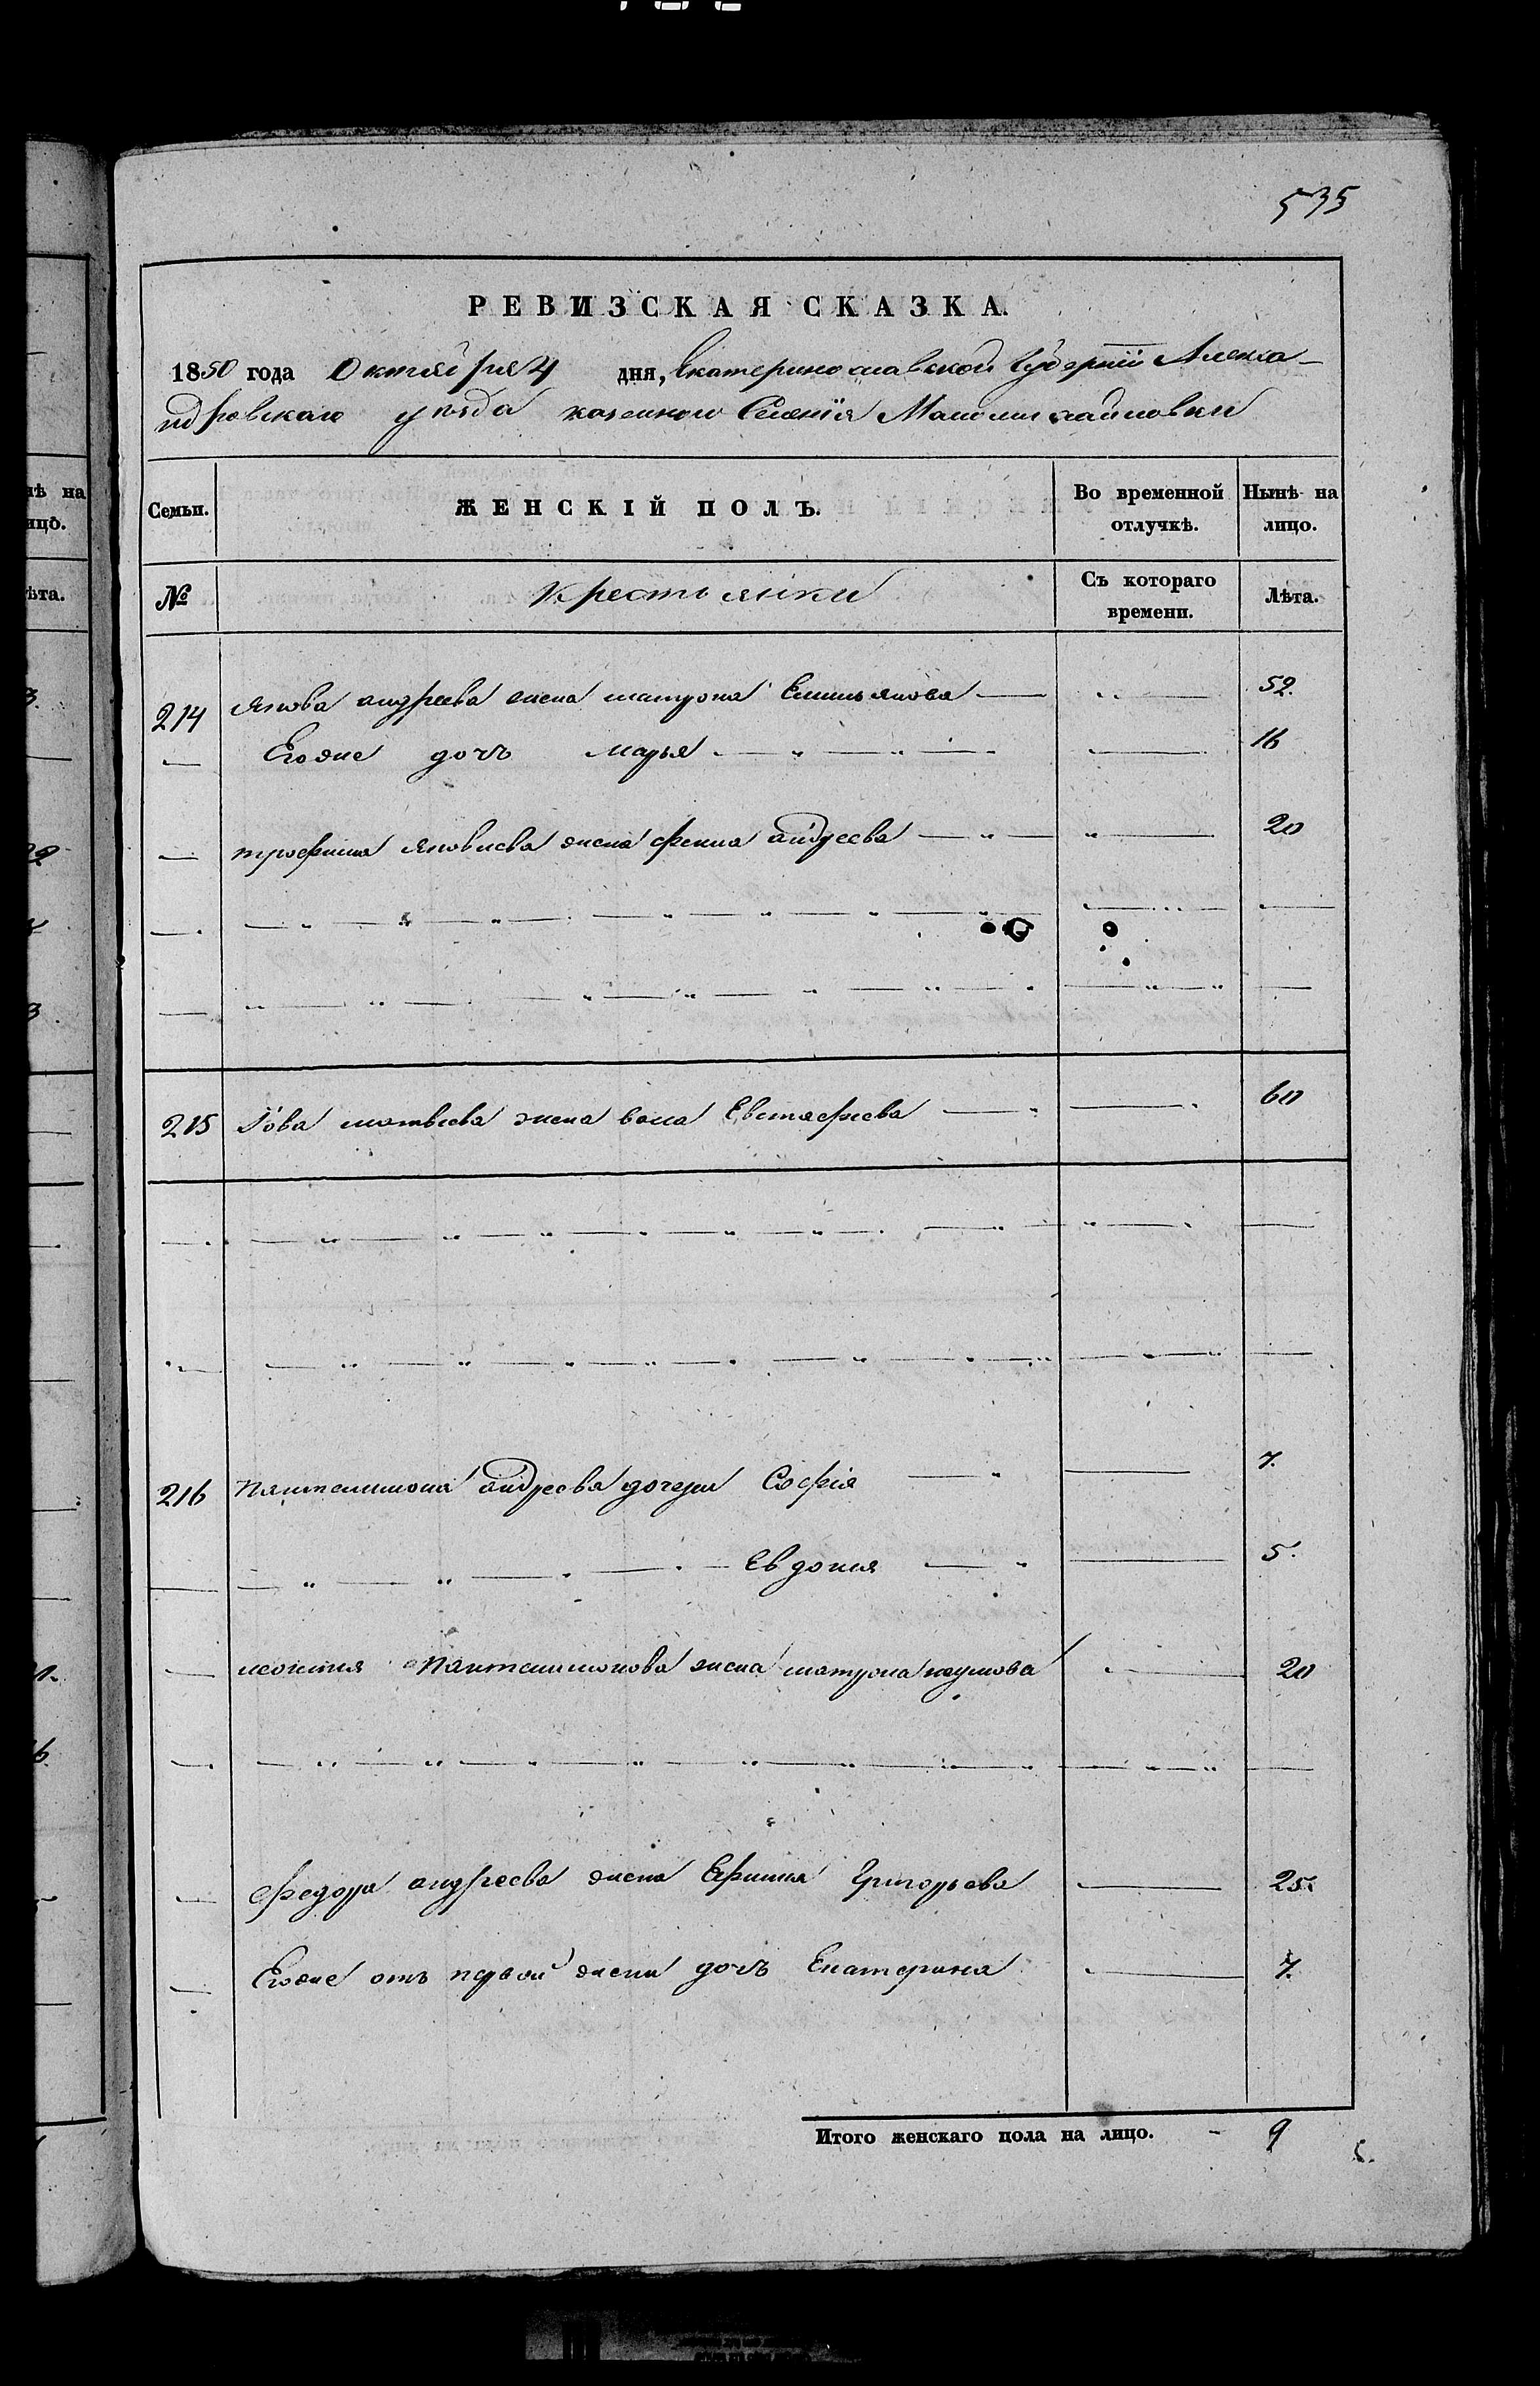 535
РЕВИЗСКАЯ СКАЗКА.
1850 года Октября 4 дня, Екатеринославской Губерніи Алекса-
ндровскаго уезда казенного Селенія Маломихайловки
Семьи. ЖЕНСКІЙ ПОЛЪ. Во временной отлучкѣ. Нынѣ на лицо.
№ Крестьянки Съ котораго времени. Лѣта.
214 Якова андреева жена матрона Емельянова 52.
Егоже дочь марья 16
трофима яковлева жена фекла андреева 20
215 Іова матвеева жена Евстафиева 60
216 Пантелимона андреева дочери Софія 7.
Евдокия 5.
леонтия Пантелимонова жена матрона наумова 20
федора андреева жена Ефимия Григорьева 25
Егоже отъ первой жены дочь Екатерина 7.
Итого женскаго пола на лицо. - 9
нѣ на
ицо.
ѣта.